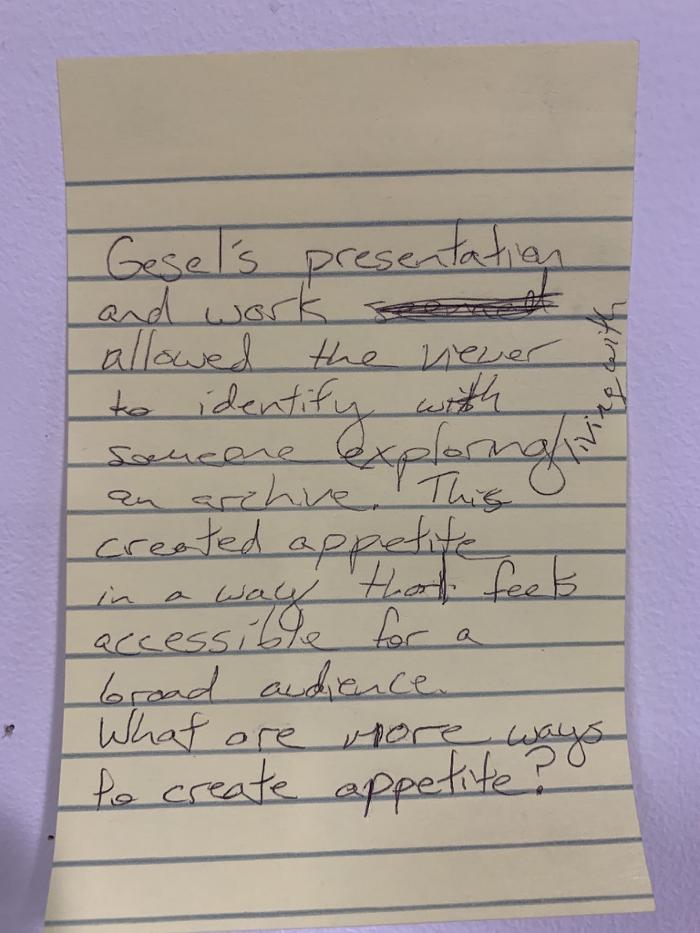 Gesel's presentation
and work seemed
allowed the viewer
to identify with
someone exploring/living with
an archive. This
created appetite
in a way that feels
accessible for a
broad audience.
What are more ways
to create appetite?